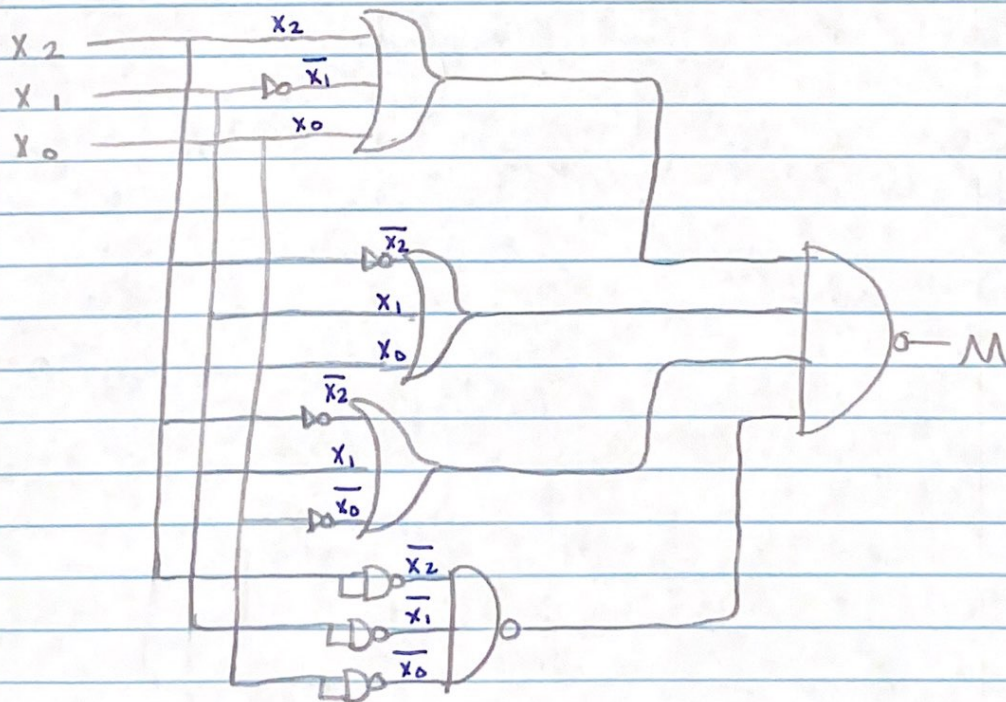 X2 x2
X1 x̅1̅
X0 x0
x̅2̅
x1
x0
x̅2̅
x1
x̅0̅
x̅2̅
x̅1̅
x̅0̅
M